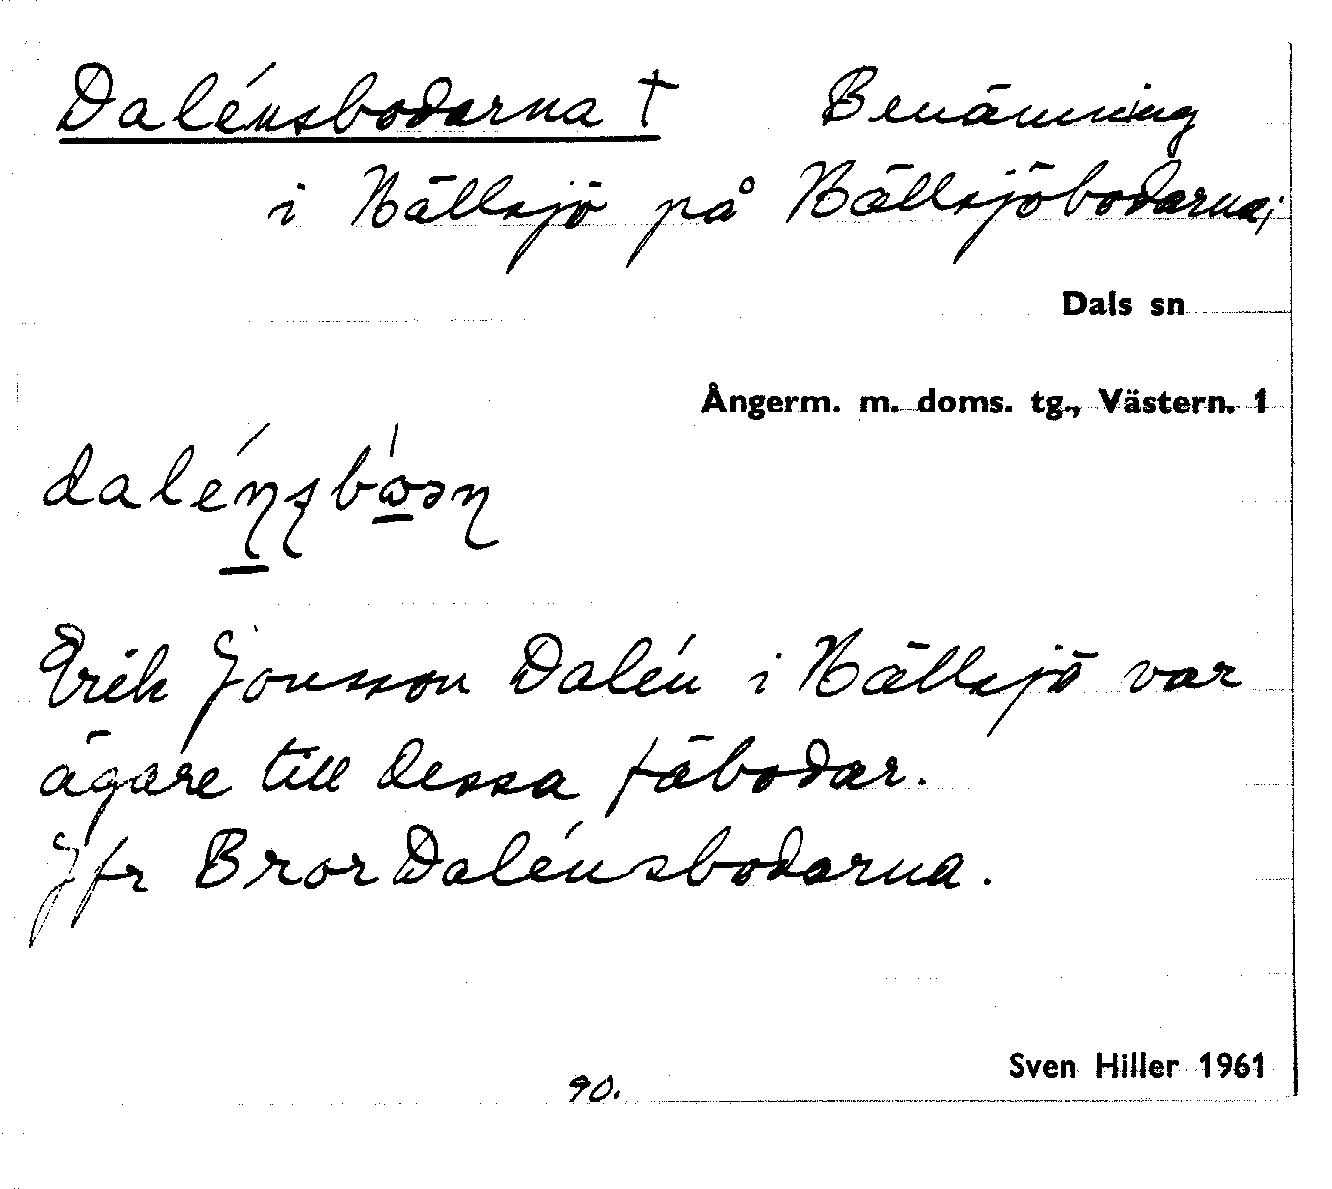 Dalénsbodarna † Benämning
i Nällsjö på Nällsjöbodarna;
Dals sn
Ångerm. m. doms. tg., Västern. 1
Erik Jonsson Dalén i Nällsjö var
ägare till dessa fäbodar.
Jfr Bror Dalénsbodarna.
Sven Hiller 1961
90.